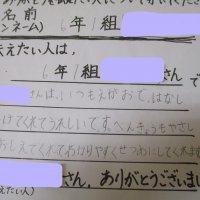 名前
ンネーム)
6年1組
伝えたい人は、
6年1組
さんで
さんは、いつもえがおで、はなし
けてくれてうれしいです。べんきょうもやさし
おしえてくれてわかりやすくせつめいしてくれます
さん、ありがとうございまし
えたい人)